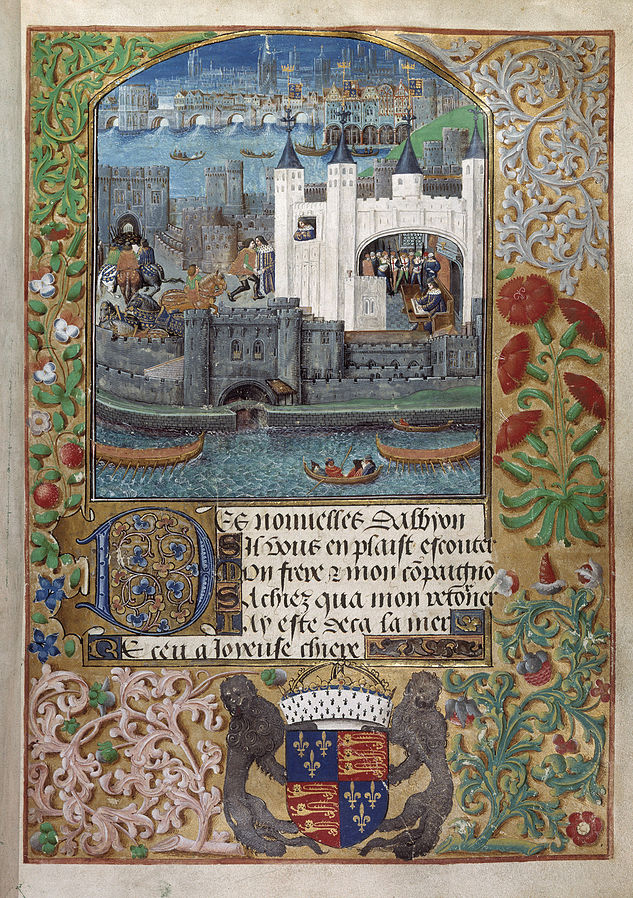 Des nouuelles Dalbyon
SIl vous en plaist escouter
Mon frere & mon cōpaignō
Sachiez qua mon retorner
Iay este deca la mer
Receu a Joyeuse chiere